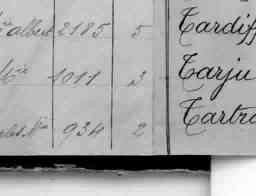 albert 2185 5 Cardiff
1011 3 Tarju
934 2 Tartra